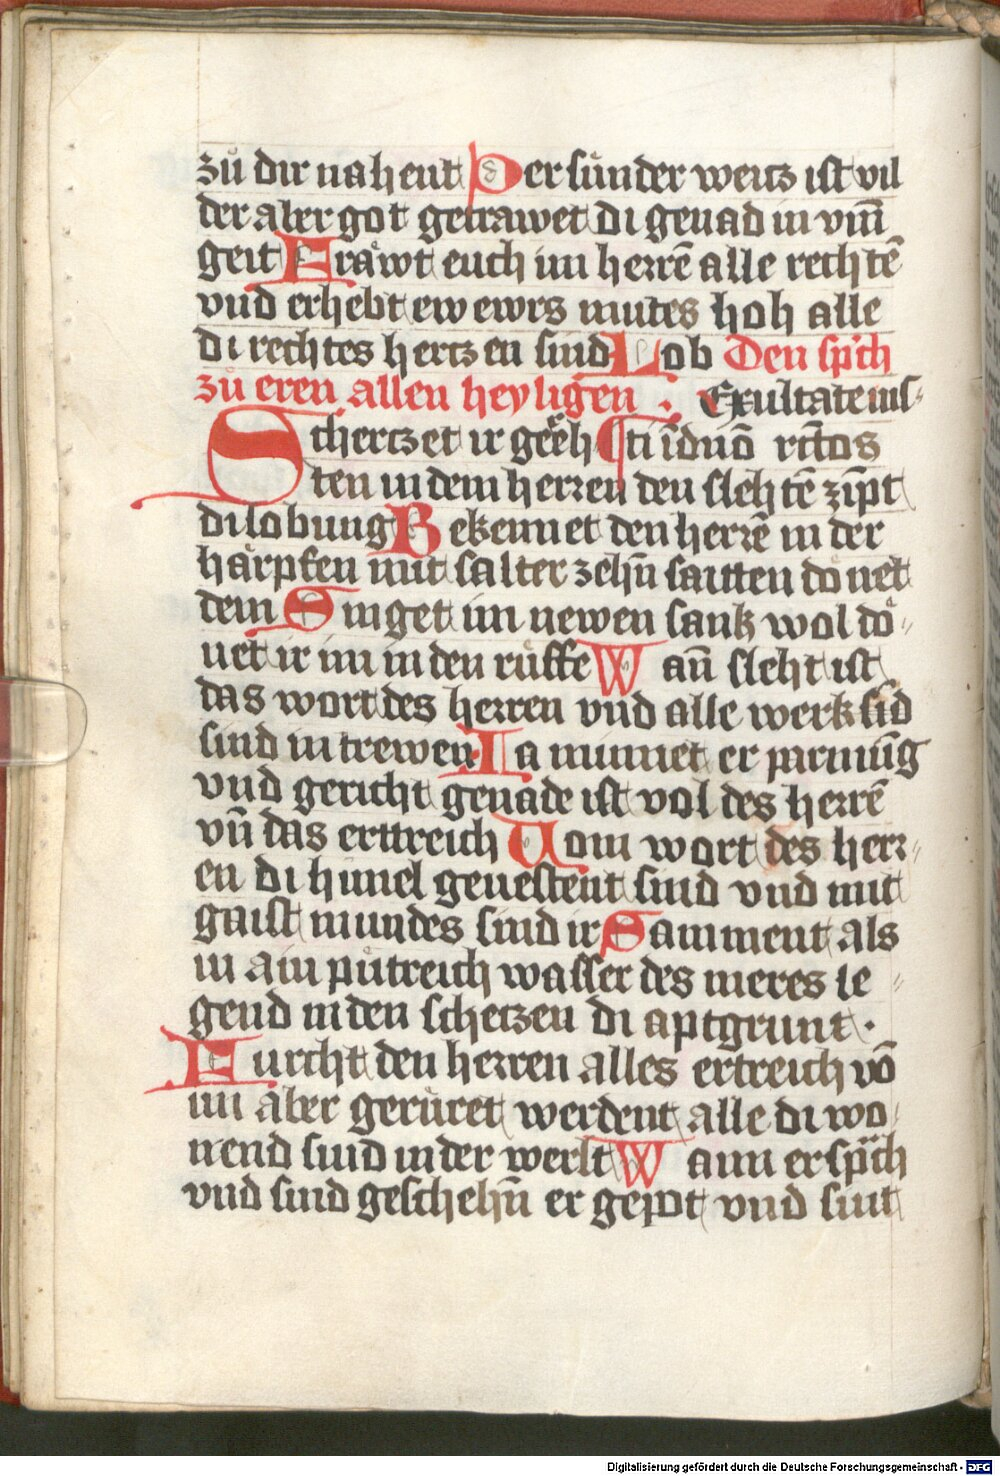 zů dir nahent Der sůnder weitz ist vil
der aber got getrawet di genad in vm̄
geit Fräwt euch im herrē alle rechtē
vnd erhebt ew ewrs mutes hoh alle
di rechtes hertzen sind Lob Den sp͛ch
zů eren allen heyligen . Exultate ius-
Schertzet ir gerëh ¶ ti ī dn̄o rc̄tos
ten in dem herren den slehtē zīpt
di lobung Bekennet den herrē in der
härpfen mit salter zehn̄ saitten dönet
dem Singet im newen sank wol dö-
net ir im in den rüffe Wan̄ sleht ist
das wort des herren vnd alle werk sid
sind in trewen Ia minnet er parmūg
vnd gericht genade ist vol des herrē
vn̄ das erttreich Vom wort des herr-
en di himel geuestent sind vnd mit
gaist mundes sind ir Samment als
in ain pütreich wasser des meres le-
gend in den schetzen di aptgrunt .
Furcht den herren alles ertreich vō
im aber gerüret werdent alle di wo-
nend sind in der werlt Wann er sp͛ch
vnd sind geschehn̄ er gepot vnd sint
Digitalisierung gefördert durch die Deutsche Forschungsgemeinschaft - DFG